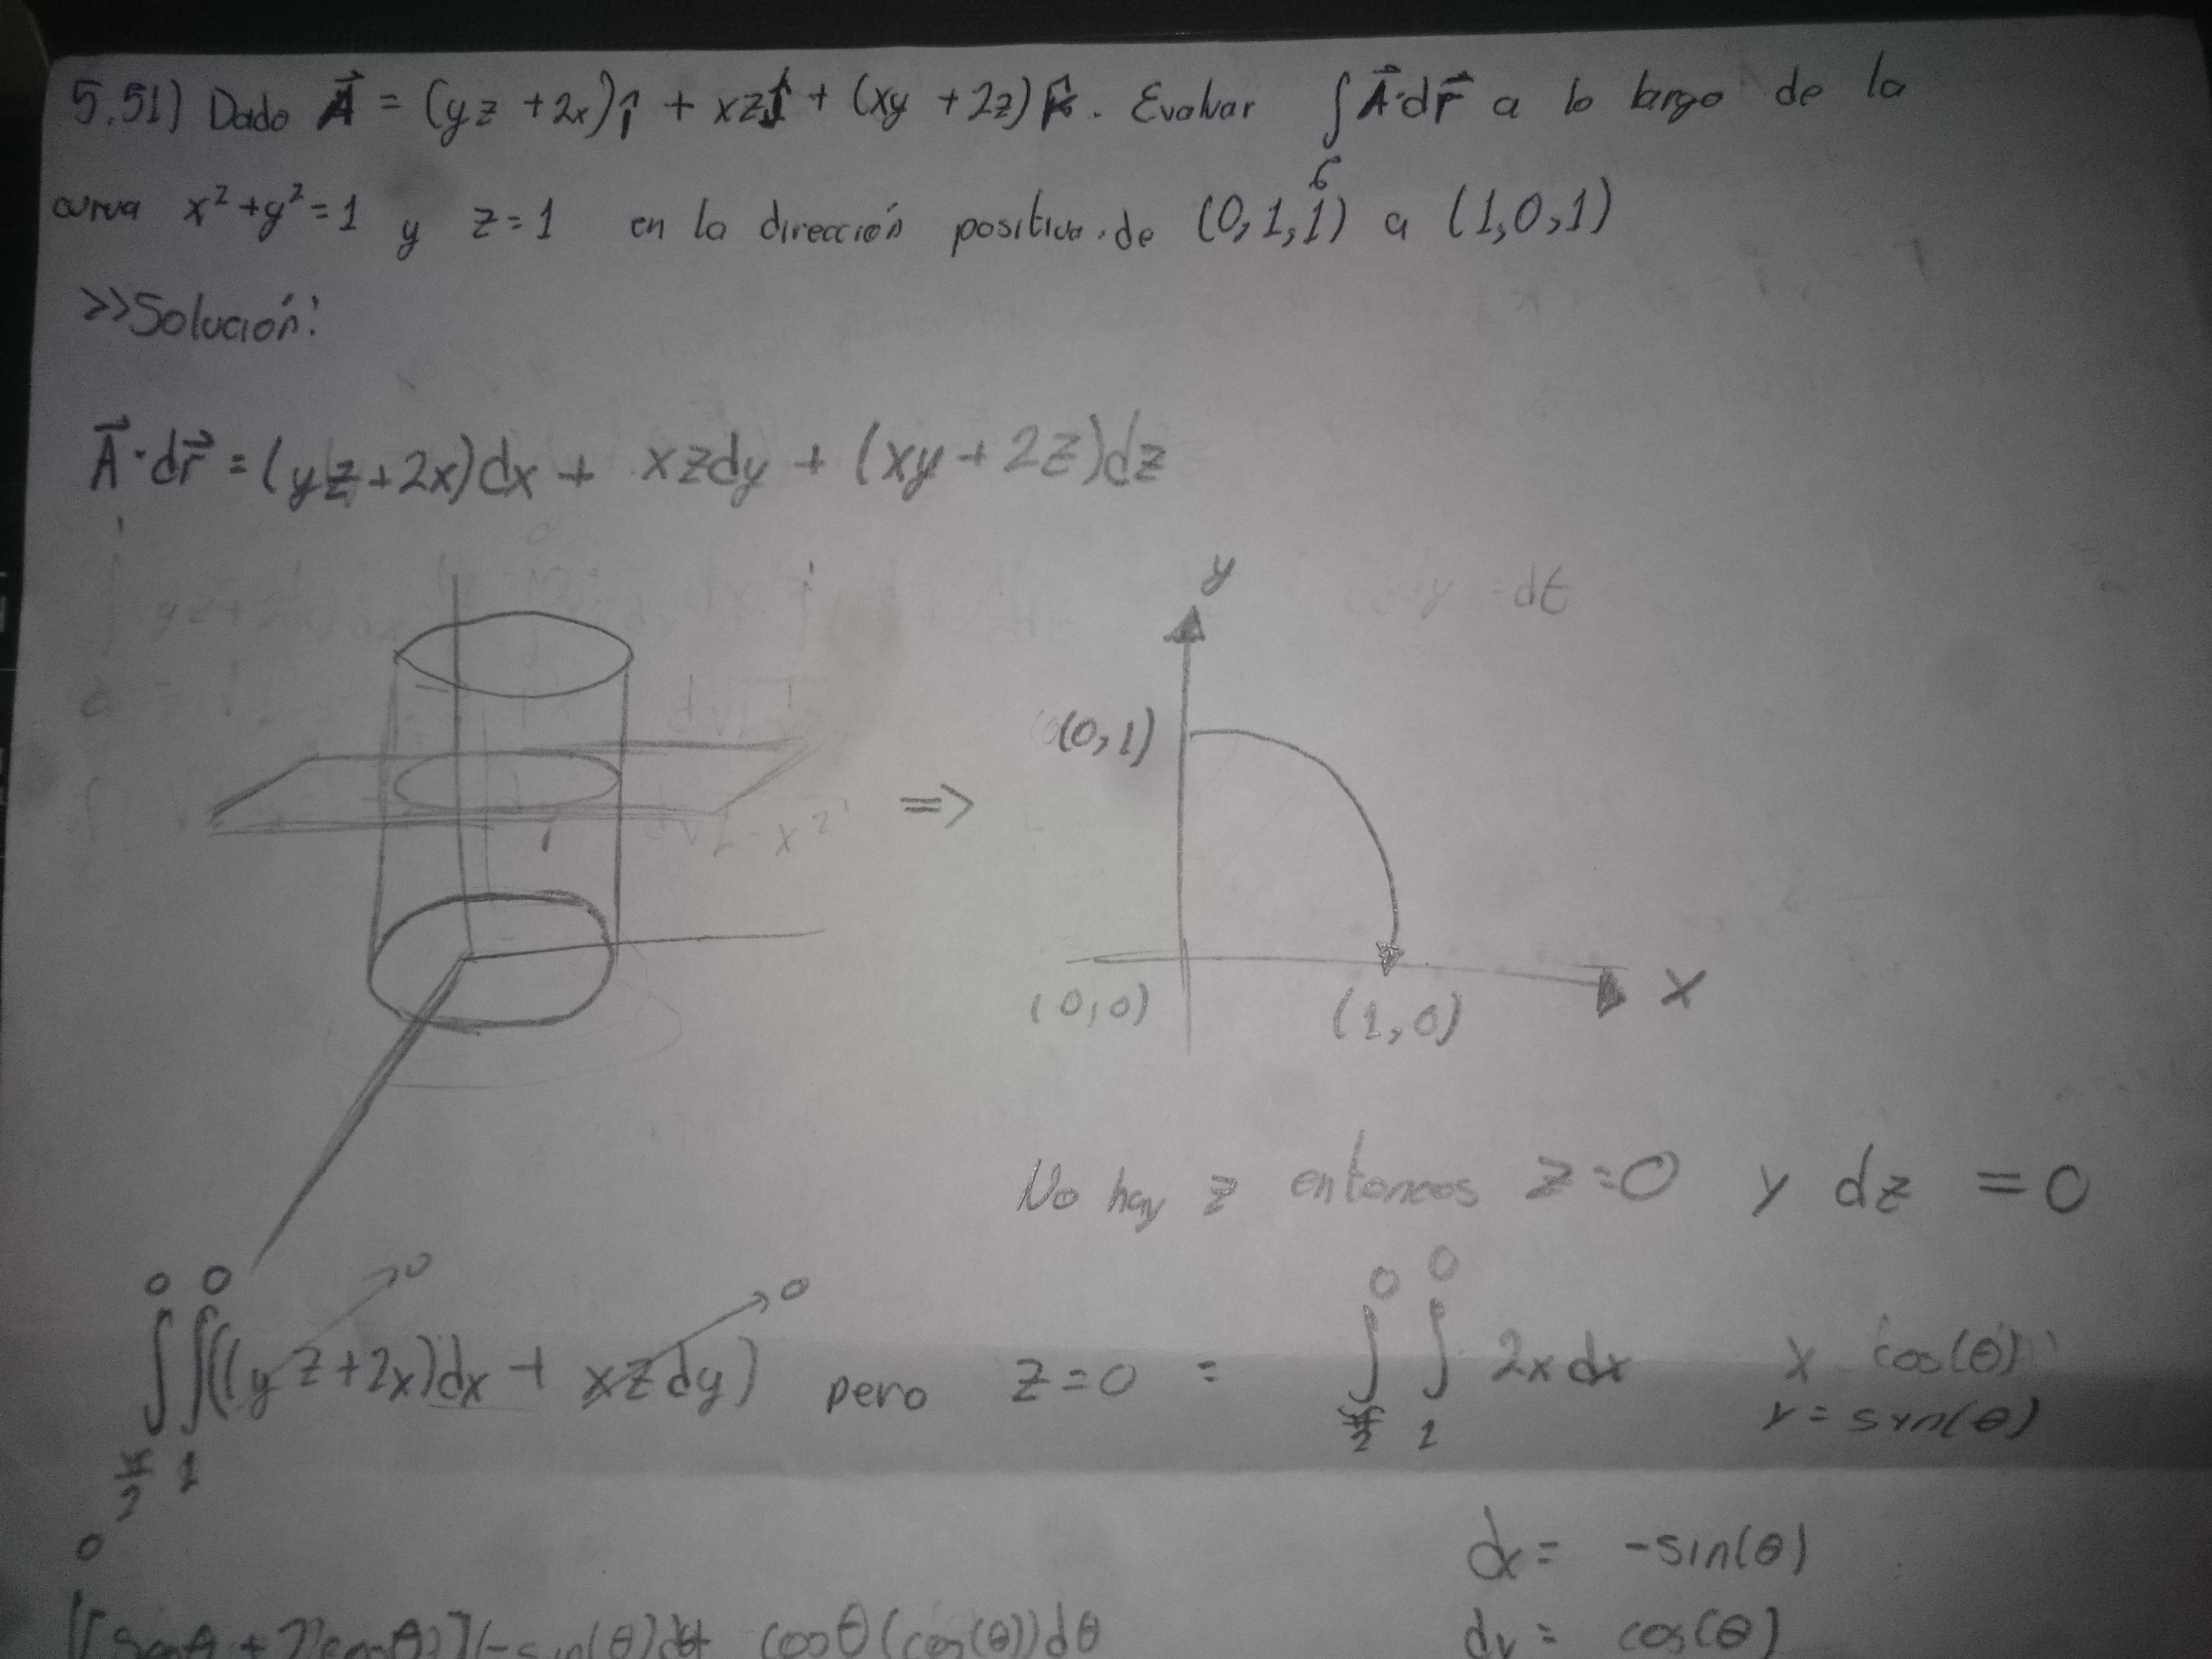 5.51) Dado A⃗ = (yz + 2x)î + xzĵ + (xy + 2z)k̂. Evaluar ∫ A⃗·dr⃗ a lo largo de la
c
curva x² + y² = 1 y z = 1 en la dirección positiva de (0,1,1) a (1,0,1)
>>Solución:
A⃗·dr⃗ = (yz + 2x)dx + xzdy + (xy + 2z)dz
y
dt
(0,1)
=>
x
(0,0) (1,0)
No hay z entonces z=0 y dz = 0
∫_{π/2}^{0} ∫_{1}^{0} ((yz + 2x)dx + xzdy) → 0 → 0 pero z=0 = ∫_{π/2}^{0} ∫_{1}^{0} 2xdx x cos(θ)
y = syn(θ)
dx = -sin(θ)
0
∫[senθ + 2(cosθ)](-sin(θ)dθ + cosθ(cos(θ))dθ dy = cos(θ)